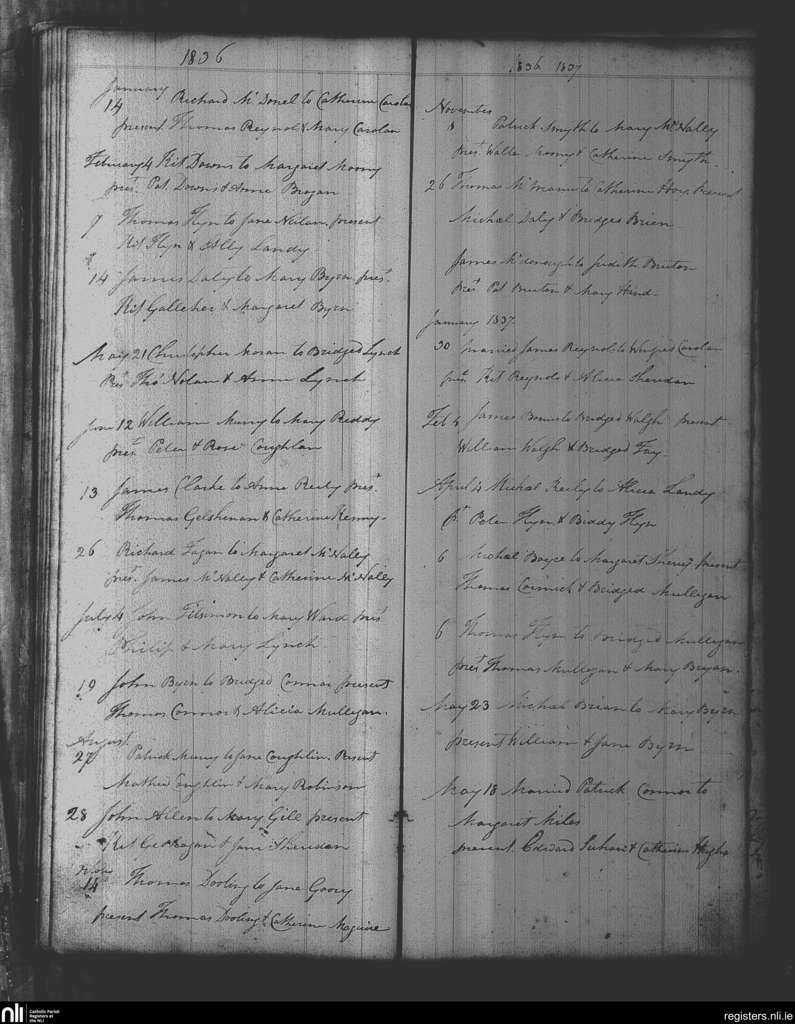 1836
January
14 Richard Mc Donel to Catherine Carolan
present Thomas Reynold & Mary Carolan
February 4 Kit Downs to Margaret Moony
prest. Pat Downs & Anne Brogan
9 Thomas Flyn to Jane Neilan, present
Kit Flyn & Ally Landy
14 James Daly to Mary Byrn prest.
Kit Galleher & Margaret Byrn
May 21 Christopher Moran to Bridged Lynch
Prest. Thos Nolan & Anne Lynch
June 12 William Murry to Mary Reddy
prest. Peter & Rose Coughlan
13 James Clarke to Anne Reily prest.
Thomas Gelshinan & Catherine Kenny
26 Richard Fagan to Margaret McNally
prest. James McNally & Catherine McNally
July 4 John Fitsimon to Mary Ward prest
Philip & Mary Lynch
19 John Byrn to Bridged Connor present
Thomas Connor & Alicia Mulligan.
August
27 Patrick Murry to Jane Coughlin. Present
Mathew Coughlin & Mary Robinson
28 John Allen to Mary Gill present
Kit Geohagan & Jane Sheridan
Nov
14 Thomas Dooling to Jane Goory
present Thomas Dooling & Catherine Maguire
1836 1837
November
8 Patrick Smyth to Mary McNally
prest. Walter Moony & Catherine Smyth
26 Thomas to Catherine present
Michael Daly & Bridged Brien
James McDonough to Judith Bruton
Prest Pat Bruton & Mary Hand
January 1837
30 Married James Reynolds to Winifred Carolan
prest. Kit Reynold & Alicia Sheridan
Feb 4 James to Bridged Walsh present
William Walsh & Bridged Fay
April 4 Michael Reily to Alicia Landy
pt Peter Flyn & Biddy Flyn
6 Michael Boyce to Margaret present
Thomas Cormick & Bridged Mulligan
6 Thomas Flyn to Bridged Mulligan
prest Thomas Mulligan & Mary Bryan.
May 23 Michael Brian to Mary Byrn
present William & Jane Byrn
May 18 Married Patrick Connor to
Margaret Miles
present. Edward & Catherine Hughs
nli
Catholic Parish
Registers at
the NLI
registers.nli.ie